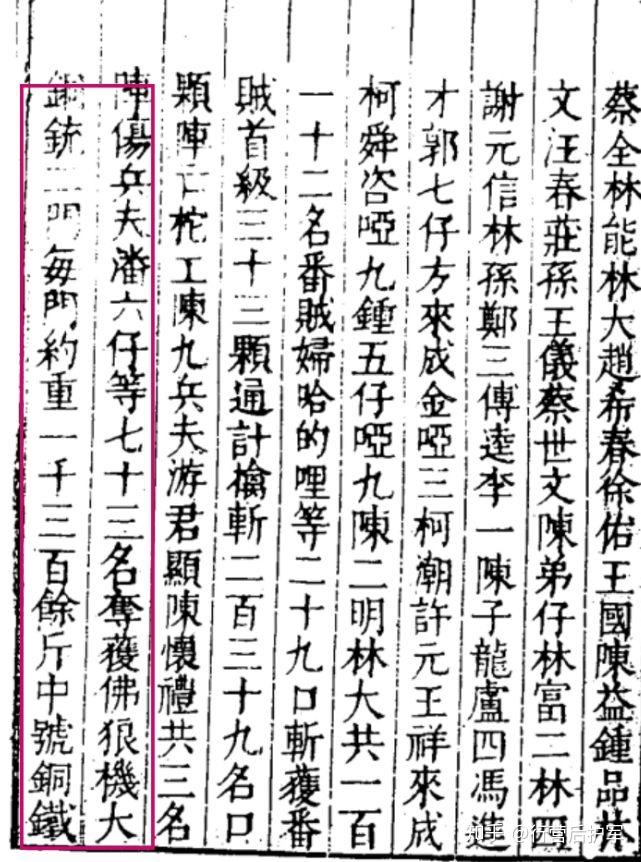 蔡全林能林大趙希春徐佑王國陳益鍾品林
文汪春莊孫王儀蔡世文陳弟仔林富二林四
謝元信林孫鄭三傳逵李一陳子龍盧四馮進
才郭七仔方來成金啞三柯潮許元王祥來成
柯舜咨啞九鍾五仔啞九陳二明林大共一百
一十二名番賊婦哈的哩等二十九口斬獲番
賊首級三十三顆通計擒斬二百三十九名口
顆陣亡柁工陳九兵夫游君顯陳懷禮共三名
陣傷兵夫潘六仔等七十三名奪獲佛狼機大
銅銃二門每門約重一千三百餘斤中號銅鐵
知乎 @行营后护军